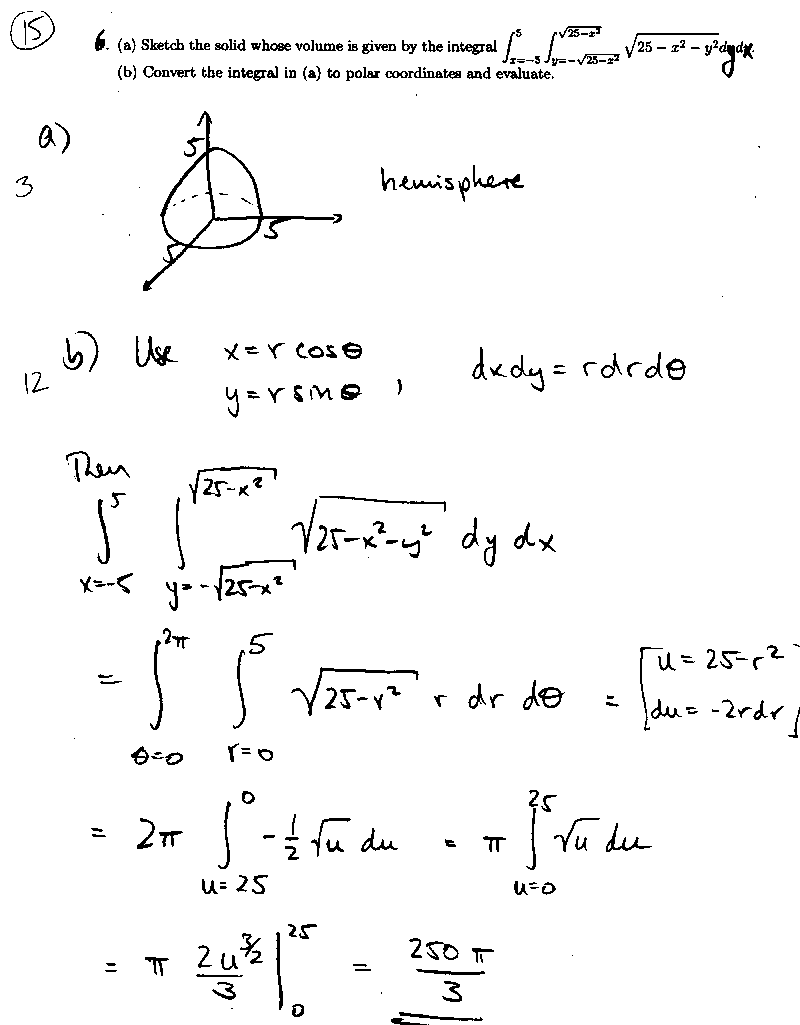 (15)
6. (a) Sketch the solid whose volume is given by the integral ∫_{x=-5}^{5} ∫_{y=-√(25-x²)}^{√(25-x²)} √(25 - x² - y²) dy dx.
(b) Convert the integral in (a) to polar coordinates and evaluate.
a)
3
5
5
5
hemisphere
b) Use x = r cos θ
12
y = r sin θ , dxdy = r dr dθ
Then
∫_{x=-5}^{5} ∫_{y=-√(25-x²)}^{√(25-x²)} √(25-x²-y²) dy dx
= ∫_{θ=0}^{2π} ∫_{r=0}^{5} √(25-r²) r dr dθ = [u = 25-r²
du = -2rdr]
= 2π ∫_{u=25}^{0} -1/2 √u du = π ∫_{u=0}^{25} √u du
= π 2u^{3/2}/3 |_0^{25} = 250π/3